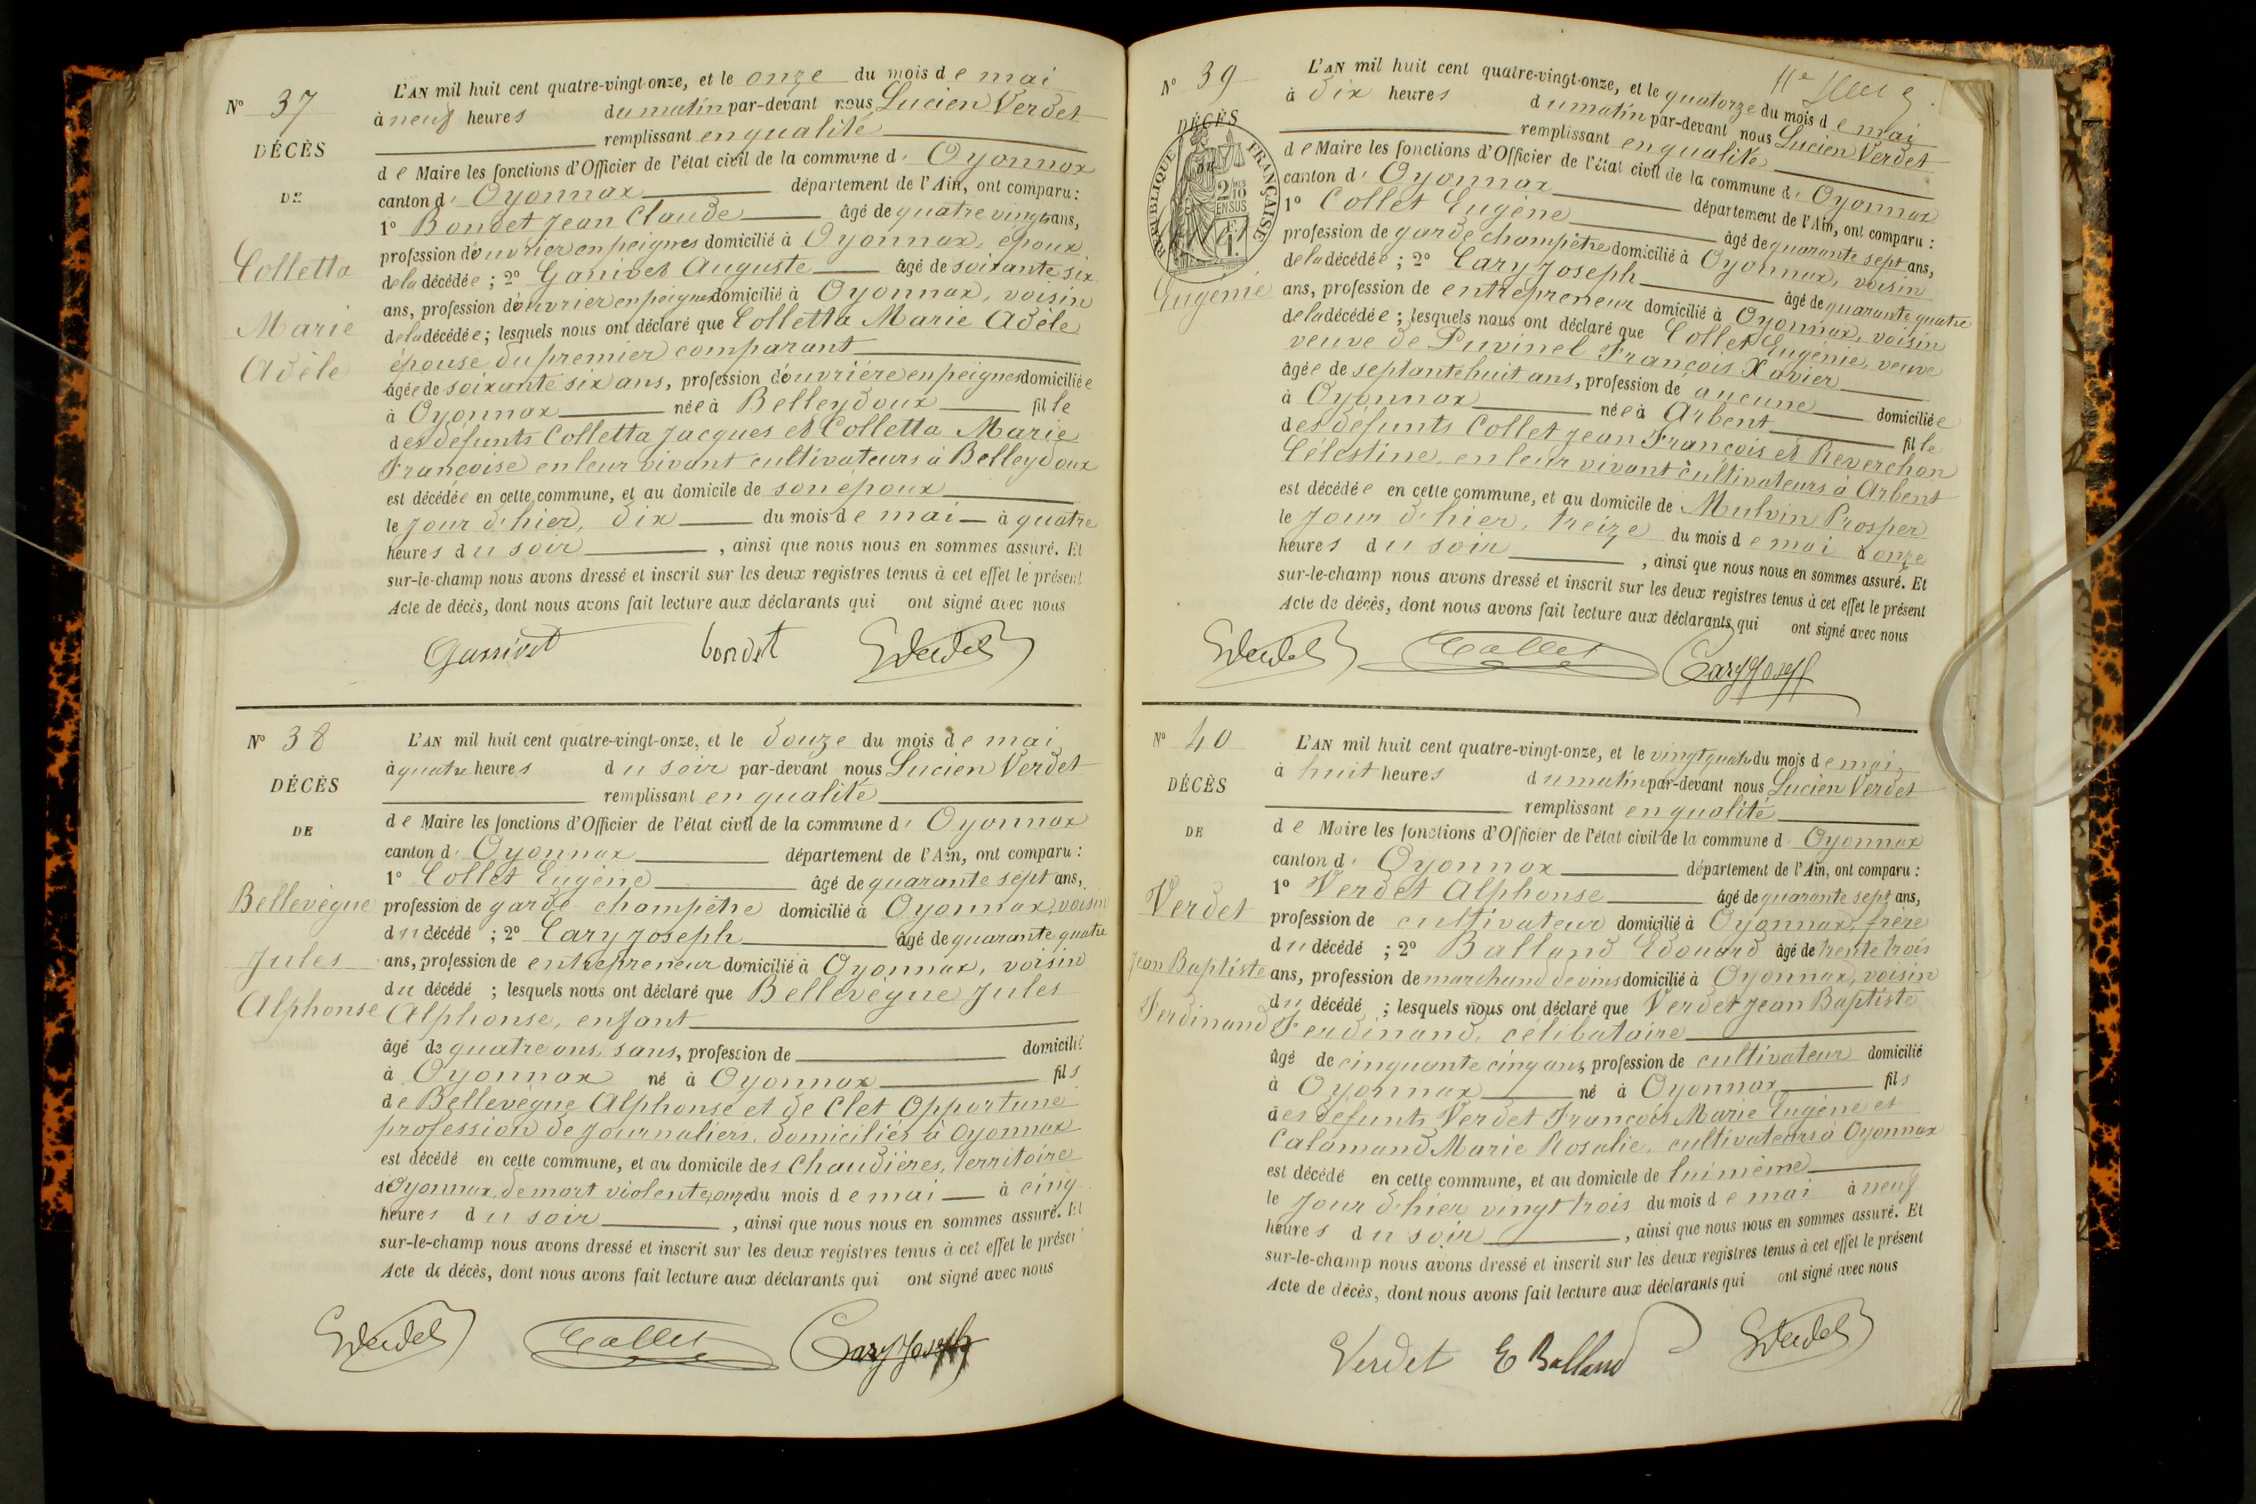 N° 37
DÉCÈS
DE
Colletta
Marie
Adèle
L'AN mil huit cent quatre-vingt-onze, et le onze du mois de mai
à neuf heures du matin par-devant nous Lucien Verdet
remplissant en qualité
de Maire les fonctions d'Officier de l'état civil de la commune d' Oyonnax
canton d' Oyonnax département de l'Ain, ont comparu :
1° Bondet Jean Claude âgé de quatre vingts ans,
profession d'ouvrier en peignes domicilié à Oyonnax, époux
de la décédée ; 2° Ganivet Auguste âgé de soixante six
ans, profession d'ouvrier en peignes domicilié à Oyonnax, voisin
de la décédée ; lesquels nous ont déclaré que Colletta Marie Adèle
épouse du premier comparant
âgée de soixante six ans, profession d'ouvrière en peignes domiciliée
à Oyonnax née à Belleydoux fille
des défunts Colletta Jacques et Colletta Marie
Françoise en leur vivant cultivateurs à Belleydoux
est décédée en cette commune, et au domicile de son époux
le jour d'hier, dix du mois de mai à quatre
heures du soir , ainsi que nous nous en sommes assuré. Et
sur-le-champ nous avons dressé et inscrit sur les deux registres tenus à cet effet le présent
Acte de décès, dont nous avons fait lecture aux déclarants qui ont signé avec nous
Gannivet bondet Verdet
N° 38
DÉCÈS
DE
Bellevègue
Jules
Alphonse
L'AN mil huit cent quatre-vingt-onze, et le douze du mois de mai
à quatre heures du soir par-devant nous Lucien Verdet
remplissant en qualité
de Maire les fonctions d'Officier de l'état civil de la commune d' Oyonnax
canton d' Oyonnax département de l'Ain, ont comparu :
1° Collet Eugène âgé de quarante sept ans,
profession de garde champêtre domicilié à Oyonnax, voisin
du décédé ; 2° Cary Joseph âgé de quarante quatre
ans, profession de entrepreneur domicilié à Oyonnax, voisin
du décédé ; lesquels nous ont déclaré que Bellevègue Jules
Alphonse, enfant
âgé de quatre ans, sans, profession de domicilié
à Oyonnax né à Oyonnax fils
de Bellevègue Alphonse et de Clet Opportune
profession de journaliers, domiciliés à Oyonnax
est décédé en cette commune, et au domicile des Chaudières, territoire
d'Oyonnax, de mort violente, onze du mois de mai à cinq
heures du soir , ainsi que nous nous en sommes assuré. Et
sur-le-champ nous avons dressé et inscrit sur les deux registres tenus à cet effet le présent
Acte de décès, dont nous avons fait lecture aux déclarants qui ont signé avec nous
Verdet Collet Cary Joseph
N° 39
DÉCÈS
RÉPUBLIQUE FRANÇAISE
2/10 EN SUS
Eugénie
L'AN mil huit cent quatre-vingt-onze, et le quatorze du mois de mai
à dix heures du matin par-devant nous Lucien Verdet
remplissant en qualité
de Maire les fonctions d'Officier de l'état civil de la commune d' Oyonnax
canton d' Oyonnax département de l'Ain, ont comparu :
1° Collet Eugène âgé de quarante sept ans,
profession de garde champêtre domicilié à Oyonnax, voisin
de la décédée ; 2° Cary Joseph âgé de quarante quatre
ans, profession de entrepreneur domicilié à Oyonnax, voisin
de la décédée ; lesquels nous ont déclaré que Collet Eugénie, veuve
veuve de Puvinel François Xavier
âgée de septante huit ans, profession de aucune domiciliée
à Oyonnax née à Arbent fille
des défunts Collet Jean François et Reverchon
Célestine, en leur vivant cultivateurs à Arbent
est décédée en cette commune, et au domicile de Mulvin Prosper
le jour d'hier, treize du mois de mai à onze
heures du soir , ainsi que nous nous en sommes assuré. Et
sur-le-champ nous avons dressé et inscrit sur les deux registres tenus à cet effet le présent
Acte de décès, dont nous avons fait lecture aux déclarants qui ont signé avec nous
Verdet Collet Cary Joseff
N° 40
DÉCÈS
DE
Verdet
Jean Baptiste
Ferdinand
L'AN mil huit cent quatre-vingt-onze, et le vingt quatre du mois de mai
à huit heures du matin par-devant nous Lucien Verdet
remplissant en qualité
de Maire les fonctions d'Officier de l'état civil de la commune d' Oyonnax
canton d' Oyonnax département de l'Ain, ont comparu :
1° Verdet Alphonse âgé de quarante sept ans,
profession de cultivateur domicilié à Oyonnax, frère
du décédé ; 2° Balland Edouard âgé de trente trois
ans, profession de marchand de vins domicilié à Oyonnax, voisin
du décédé ; lesquels nous ont déclaré que Verdet Jean Baptiste
Ferdinand, célibataire
âgé de cinquante cinq ans, profession de cultivateur domicilié
à Oyonnax né à Oyonnax fils
des défunts Verdet François Marie Eugène et
Calamand Marie Rosalie, cultivateurs à Oyonnax
est décédé en cette commune, et au domicile de lui même
le jour d'hier vingt trois du mois de mai à neuf
heures du soir , ainsi que nous nous en sommes assuré. Et
sur-le-champ nous avons dressé et inscrit sur les deux registres tenus à cet effet le présent
Acte de décès, dont nous avons fait lecture aux déclarants qui ont signé avec nous
Verdet E Balland Verdet